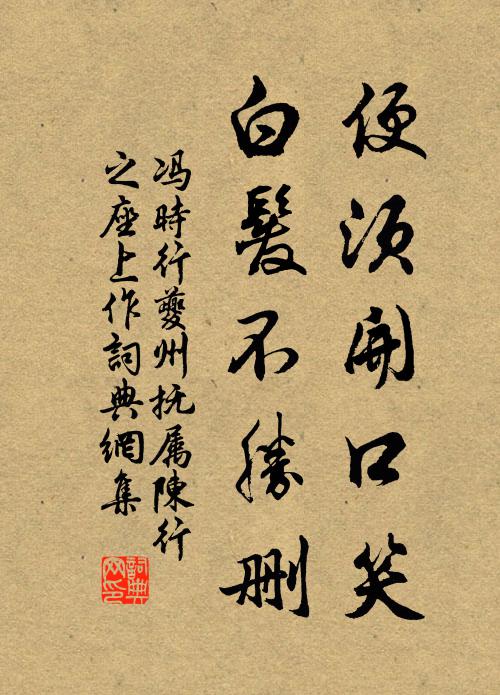 便須開口笑
白髮不勝刪
馮時行夔州抚属陳行
之座上作詞典網集
詞典
网印